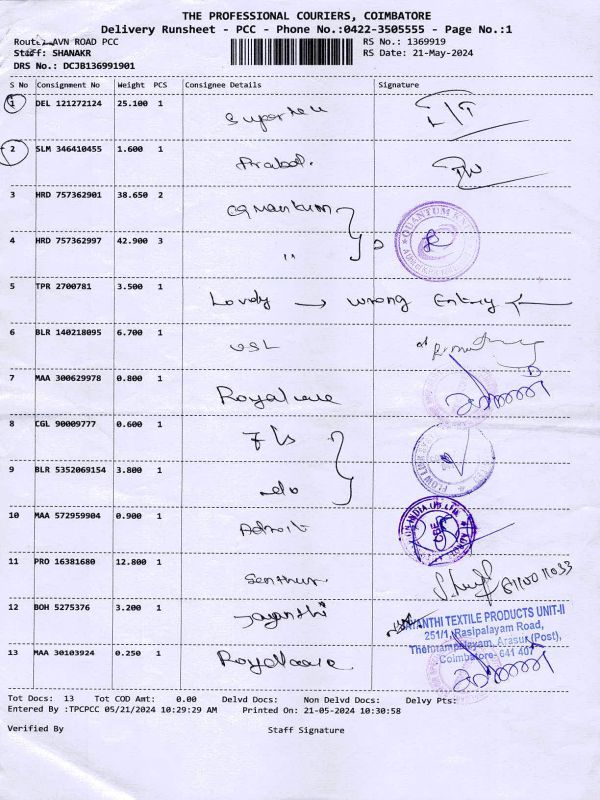 THE PROFESSIONAL COURIERS, COIMBATORE
Delivery Runsheet - PCC - Phone No.:0422-3505555 - Page No.:1
Route: AVN ROAD PCC RS No.: 1369919
Staff: SHANAKR RS Date: 21-May-2024
DRS No.: DCJB136991901
S No Consignment No Weight PCS Consignee Details Signature
1 DEL 121272124 25.100 1
2 SLM 346410455 1.600 1
3 HRD 757362901 38.650 2
QUANTUM KNIT
4 HRD 757362997 42.900 3 "
5 TPR 2700781 3.500 1 Lovely → wrong Entry ←
6 BLR 140218095 6.700 1 VSL
7 MAA 300629978 0.800 1 Royalcare
8 CGL 90009777 0.600 1
9 BLR 5352069154 3.800 1 do
10 MAA 572959904 0.900 1 Adroit
INDIA (P) LTD
CBE
11 PRO 16381680 12.800 1 Senthur
12 BOH 5275376 3.200 1 Jayanthi
JAYANTHI TEXTILE PRODUCTS UNIT-II
251/1, Rasipalayam Road,
Arasur (Post),
Coimbatore- 641 407
13 MAA 30103924 0.250 1 Royalcare
Tot Docs: 13 Tot COD Amt: 0.00 Delvd Docs: Non Delvd Docs: Delvy Pts:
Entered By :TPCPCC 05/21/2024 10:29:29 AM Printed On: 21-05-2024 10:30:58
Verified By Staff Signature